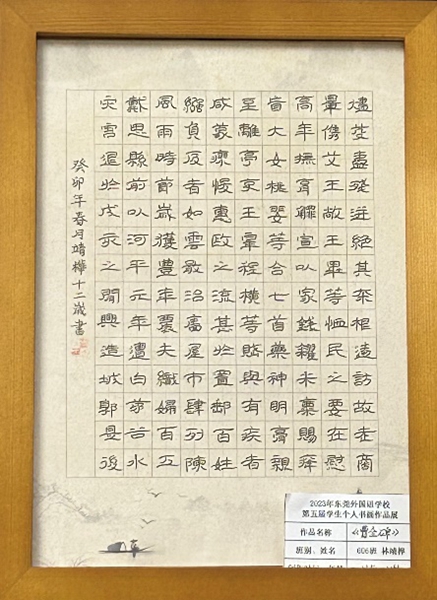 燼芟盡殘迸絕其本根遂訪故老商
量儁艾王敞王畢等恤民之要存慰
高年撫育鰥寡以家錢糴米粟賜癃
盲大女桃婓等合七首藥神明膏親
至離亭吏王皐程橫等賦與有疾者
咸蒙瘳悛惠政之流甚於置郵百姓
繈負反者如雲戢治廧屋市肆列陳
風雨時節歲獲豐年農夫織婦百工
戴恩縣前以河平元年遭白茅谷水
災害退於戍亥之間興造城郭是後
癸卯年春月靖樺十二歲書
2023年东莞外国语学校
第五届学生个人书画作品展
作品名称 《曹全碑》
班别、姓名 606班 林靖桦